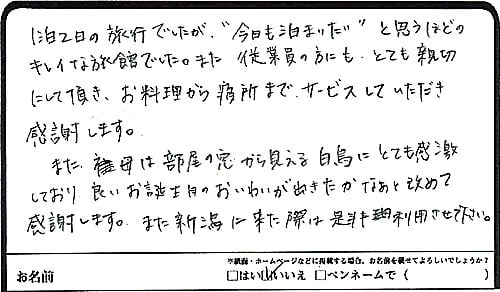 1泊2日の旅行でしたが、"今日も泊まりたい"と思うほどの
キレイな旅館でした。また 従業員の方にも、とても親切
にして頂き、お料理から 所まで、サービスしていただき
感謝します。
また、母は部屋の窓から見える白鳥にとても感激
しており、良いお誕生日のおいわいが出きたかなあと改めて
感謝します。また新潟に来た際は是非利用させて下さい。
※紙面・ホームページなどに掲載する場合、お名前を載せてよろしいでしょうか?
お名前 □はい □いいえ □ペンネームで( )